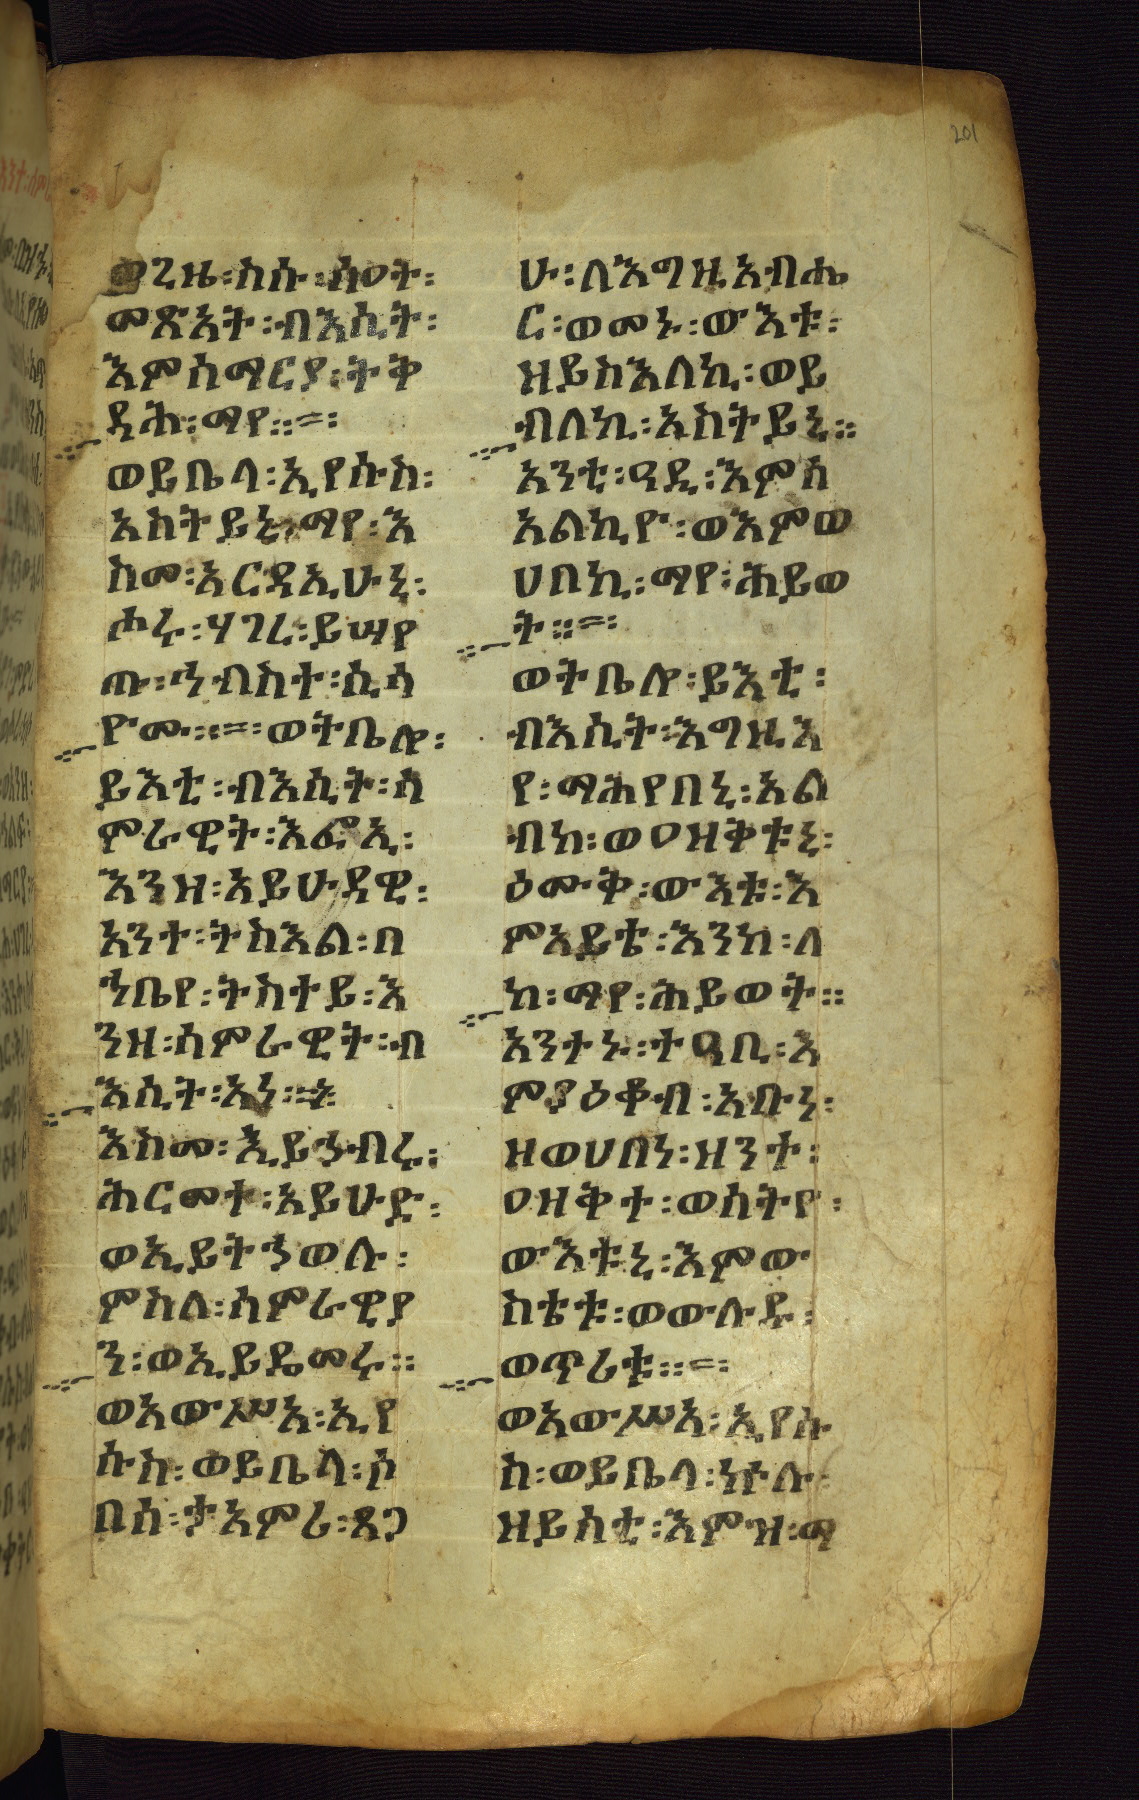 201
ወጊዜ፡ስሱ፡ሰዐት፡
መጽአት፡ብእሲት፡
እምሰማርያ፡ትቅ
ዳሕ፡ማየ።=፡
ወይቤላ፡ኢየሱስ፡
አስትይኒ፡ማየ፡እ
ስመ፡አርዳኢሁኒ፡
ሖሩ፡ሃገረ፡ይሣየ
ጡ፡ኅብስተ፡ሲሳ
ዮሙ።=፡ወትቤሎ፡
ይእቲ፡ብእሲት፡ሳ
ምራዊት፡እፎኢ፡
እንዘ፡አይሁዳዊ፡
አንተ፡ትስእል፡በ
ኀቤየ፡ትስተይ፡እ
ንዘ፡ሳምራዊት፡ብ
እሲት፡አነ፡፡
እስመ፡ኢይኅብሩ፡
ሕርመተ፡አይሁድ፡
ወኢይትኀወሉ፡
ምስለ፡ሳምራዊያ
ን፡ወኢይዴመሩ።
ወአውሥአ፡ኢየ
ሱስ፡ወይቤላ፡ሶ
በሰ፡ታአምሪ፡ጸጋ
ሁ፡ለእግዚአብሔ
ር፡ወመኑ፡ውእቱ፡
ዘይስእለኪ፡ወይ
ብለኪ፡አስትይኒ።
አንቲ፡ዓዲ፡እምሰ
አልኪዮ፡ወእምወ
ሀበኪ፡ማየ፡ሕይወ
ት።=፡
ወትቤሎ፡ይእቲ፡
ብእሲት፡እግዚእ
የ፡ማሕየበኒ፡አል
ብከ፡ወዐዘቅቱኒ፡
ዕሙቅ፡ውእቱ፡እ
ምአይቴ፡እንከ፡ለ
ከ፡ማየ፡ሕይወት።
አንተኑ፡ተዓቢ፡እ
ምያዕቆብ፡አቡነ፡
ዘወሀበነ፡ዘንተ፡
ዐዘቅተ፡ወሰትየ፡
ውእቱኒ፡እምው
ስቴቱ፡ወውሉዱ፡
ወጥሪቱ።=፡
ወአውሥአ፡ኢየሱ
ስ፡ወይቤላ፡ኵሉ፡
ዘይሰቲ፡እምዝ፡ማ